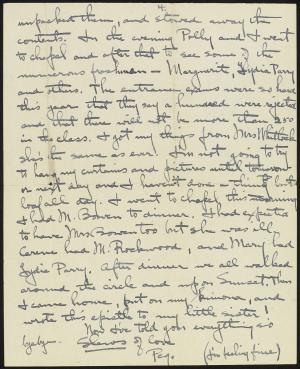 4.
unpacked them, and stored away the
contents. In the evening Polly and I went
to chapel and after that to see some of the
numerous freshmen - Marguerite, Lydie Parry
and others. The entrance exams were so hard
this year that they say a hundred were rejected
and that there will not be more than 250
in the class. I got my things from Mrs Whittock
she's the same as ever. I'm not going to try
to hang curtains and pictures until tomorrow
or next day and I haven't done a thing but
loaf all day. I went to chapel this morning
I had M. Bowen to dinner. I had expected
to have Mrs Bowen too but she was ill,
had M. Rockwood, and Mary had
Lydie Parry. After dinner we all walked
around the circle and up on Sunset, Then
I came home, put on my kimono, and
wrote this epistle to my little sister!
Now I've told you everything so
bye bye. of love
Peg. (I'm feeling fine)